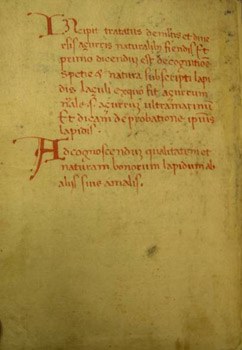 Incipit tractatus de multis et diuer
sis açurris naturalibus fiendis. Et
primo dicendum est de cognitione
Spetie et natura subscripti lapi
dis laçuli ex quo fit açurrum
Et dicam de probatione ipsius
lapidis.
Ad cognoscendum qualitatem et
naturam bonorum lapidum ab
aliis siue a malis.